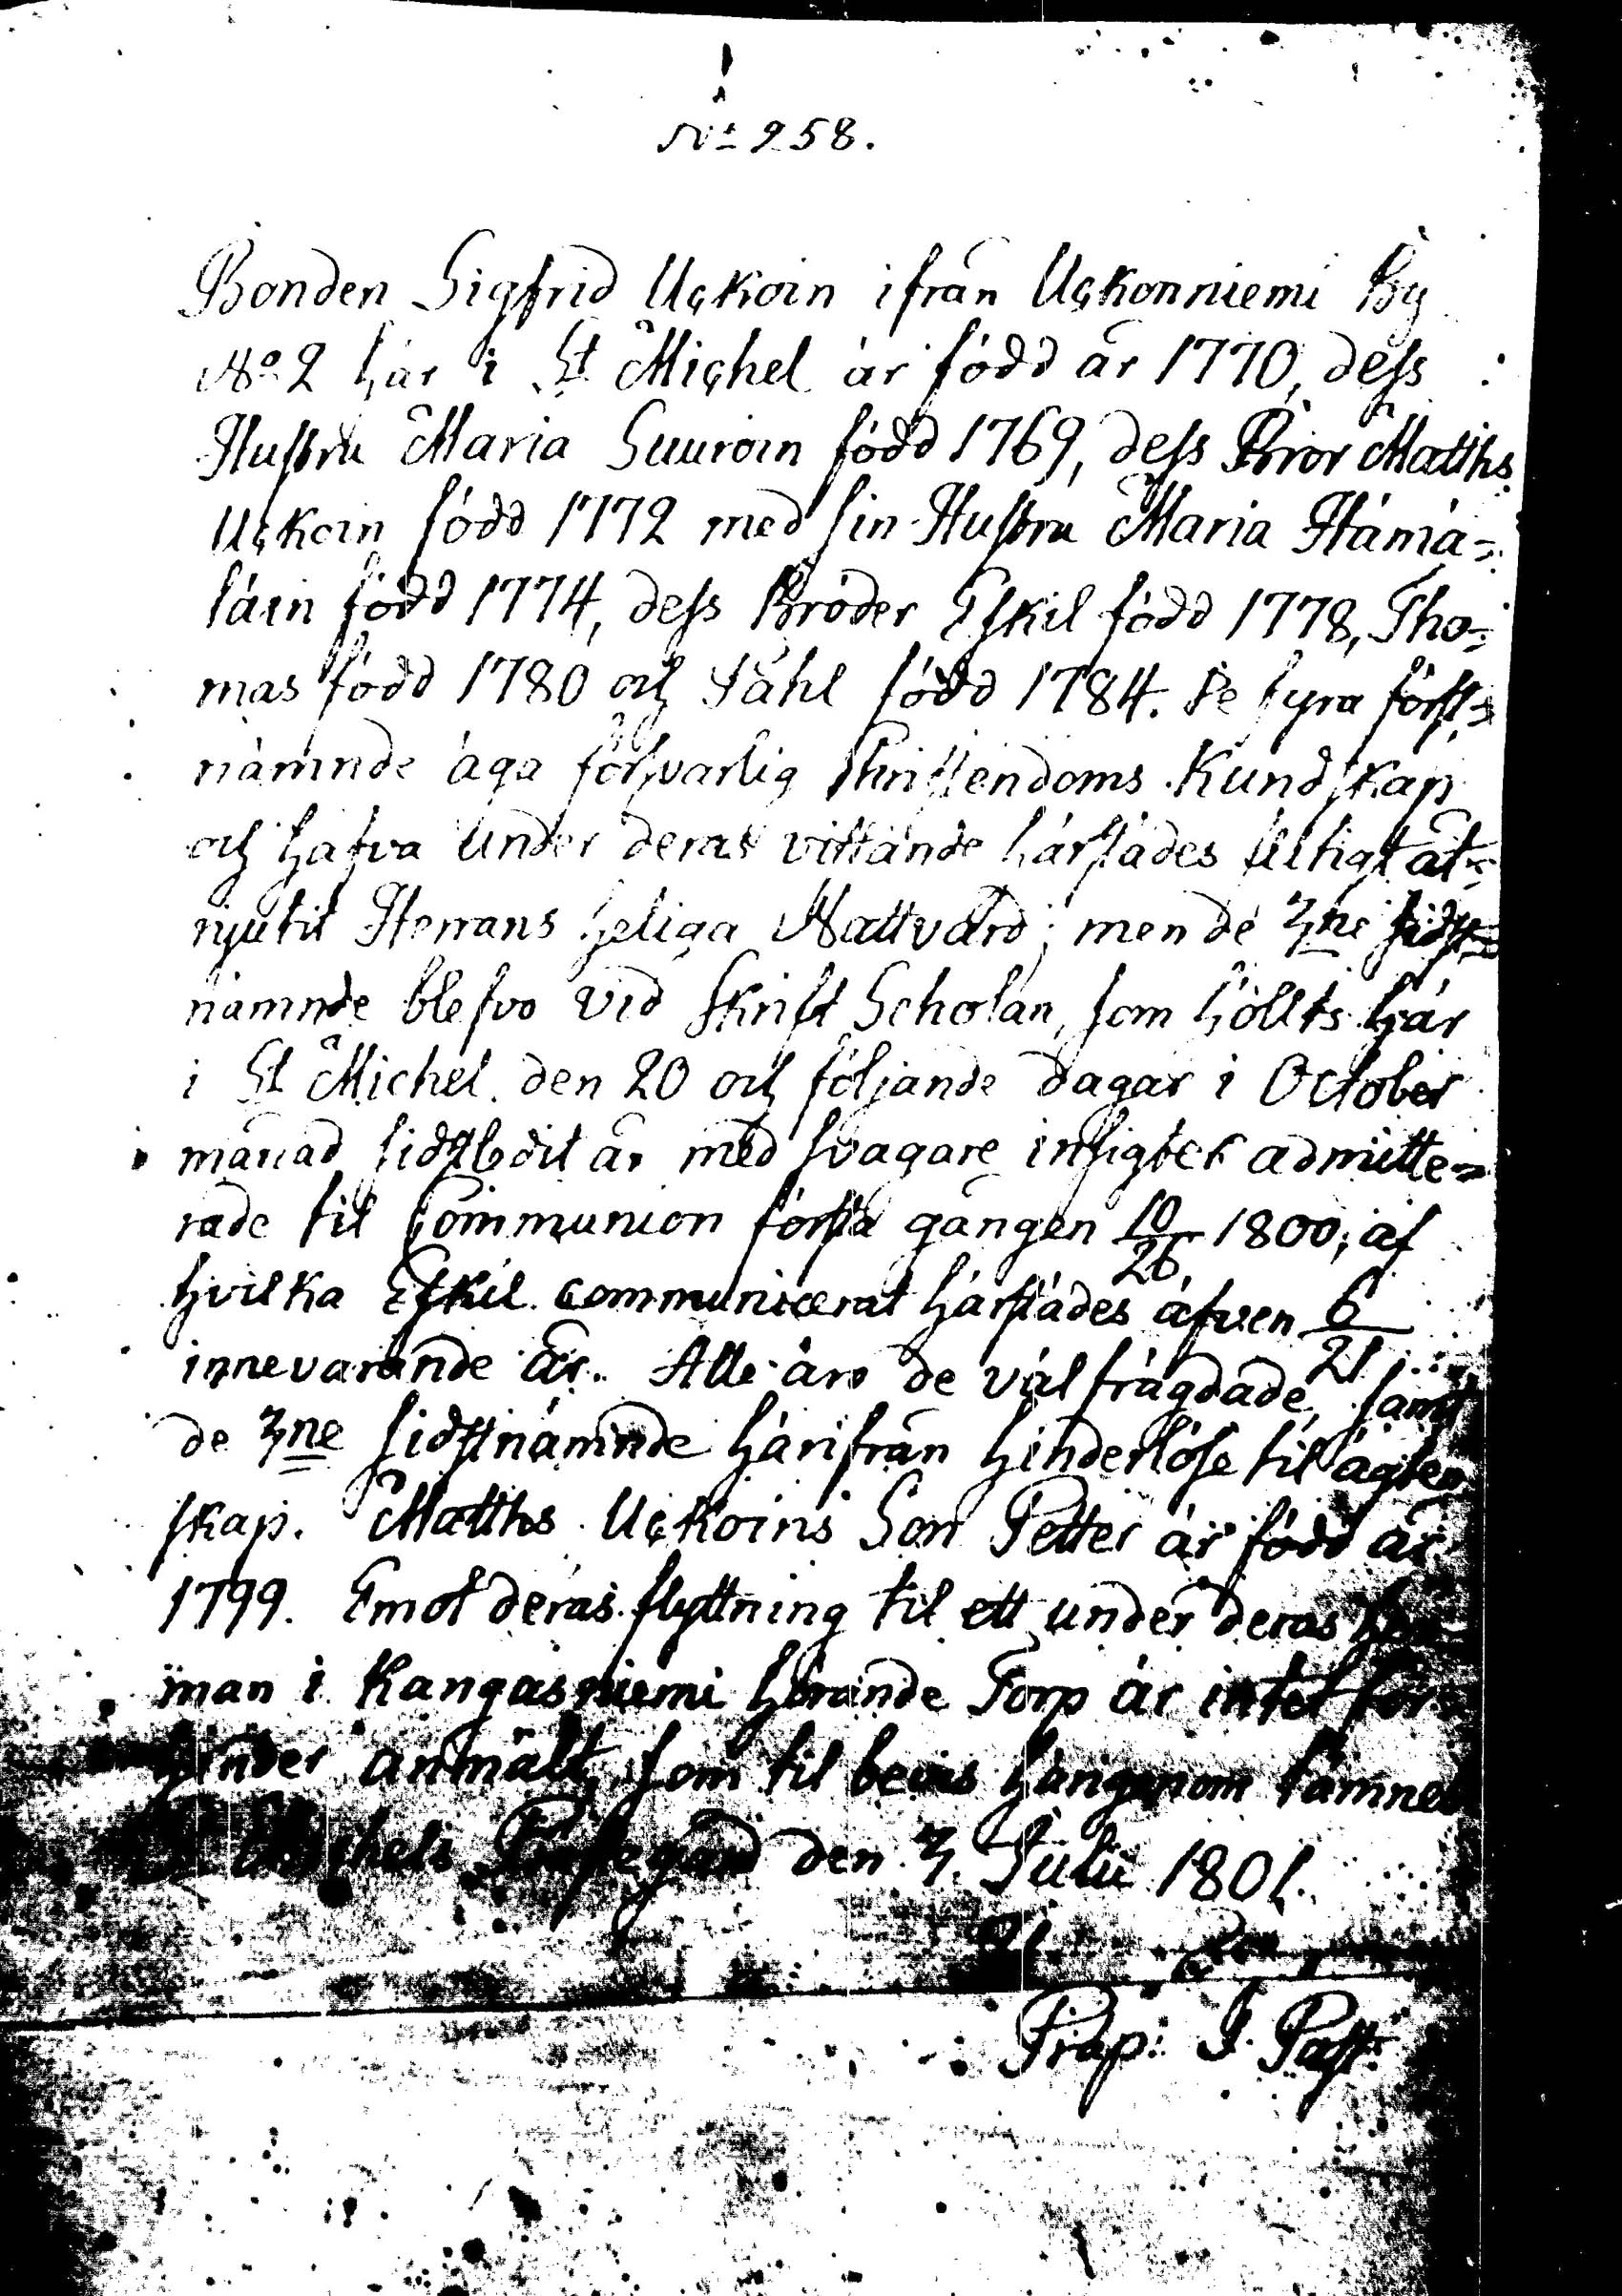 No 258.
Bonden Sigfrid Uckoin ifrån Uckonniemi By
No 2 här i St Michel är född år 1770, dess
Hustru Maria Suuroin född 1769, dess Bror Matths
Uckoin född 1772 med sin Hustru Maria Hämä-
läin född 1774, dess Bröder Eskil född 1778, Tho-
mas född 1780 och Påhl född 1784. De fyra först-
nämnde äga försvarlig Christendoms Kundskap
och hafva under deras vistande härstädes flitigt åt-
njutit Herrans heliga Nattvard; men de 3ne sidst-
nämnde blefvo vid Skrift Scholan, som hölts här
i St Michel den 20 och följande dagar i October
månad sidstledit år med svagare insigter admitte-
rade til Communion första gången 10/26 1800; af
hvilka Eskil communicerat härstädes äfven 6/21
innevarande år. Alle äro de välfrägdade, samt
de 3ne sidstnämnde härifrån hinderlöse til ägten
skap. Matths Uckoins Son Petter är född år
1799. Emot deras flyttning til ett under deras hem-
man i Kangasniemi hörande Torp är intet för-
hinder anmält, som til bevis härigenom lämnes
Michels Prestegård den 3. Julii 1801.
Præp: I. Past: